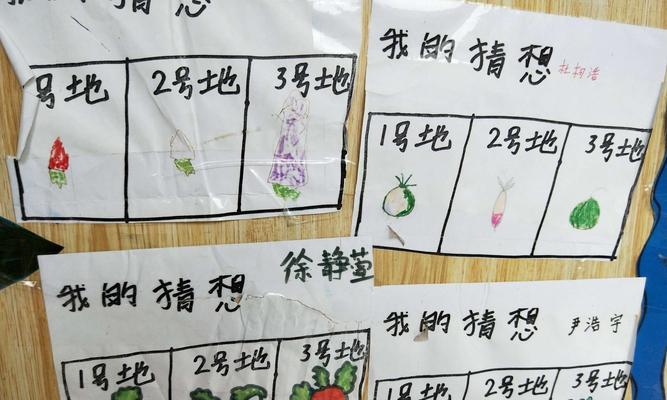 我的猜想
号土也 2号土也 3号土也
我的猜想 杜柯浩
1号地 2号地 3号地
我的猜想 徐静萱
1号地 2号地 3号地
我的猜想 尹浩宇
1号地 2号地 3号地